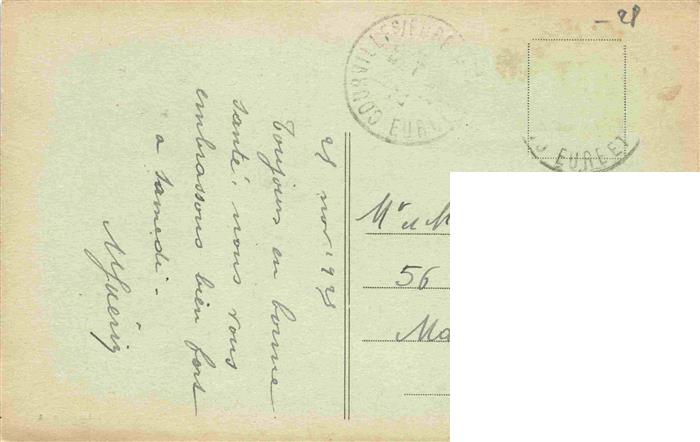 - 28
COURVILLE S/ EURE
EURE
EURE ET
28 nov. 1928
Toujours en bonne
santé, nous vous
embrassons bien fort
a samedi -
Guérin
Mr et M
56
Ma